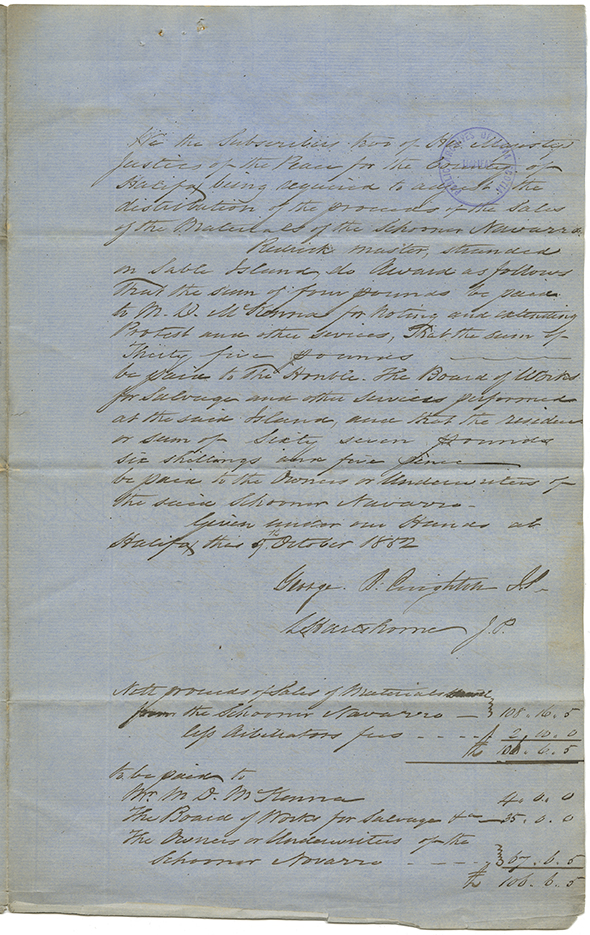 We the Subscribers two of Her Majesty's
Justices of the Peace for the County of
Halifax being required to adjust the
distribution of the proceeds of the Sales
of the Materials of the Schooner Navarro
Redrick master, stranded
on Sable Island, do Award as follows
That the sum of four pounds be paid
to M. D. McKenna for Noting and extending
Protest and other services, That the sum of
Thirty five pounds
be paid to The Honble. The Board of Works
for Salvage and other Services performed
at the said Island, and that the residue
or sum of Sixty seven pounds
six shillings and five pence
be paid to the Owners or Underwriters of
the said Schooner Navarro.
Given under our Hands at
Halifax this 5th October 1852
George P. J.P.
L Hartshorne J.P.
Nett proceeds of Sales of Materials
from the Schooner Navarro — 108.16.5
less Arbitrators fees - - - - 2.10.0
£ 106.6.5
to be paid to
Mr. M D. McKenna 4.0.0
The Board of Works for Salvage &c — 35.0.0
The Owners or Underwriters of the
Schooner Novarro - - - - 67.6.5
£ 106.6.5